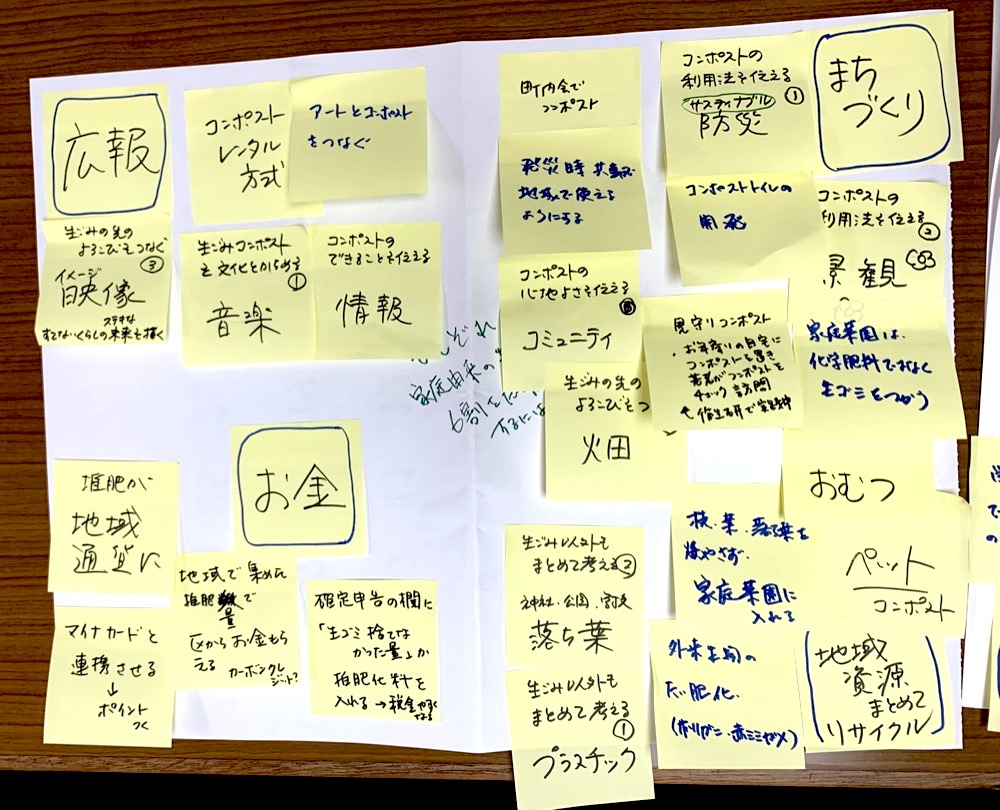 広報
コンポスト
レンタル
方式
アートとコンポスト
をつなぐ
生ごみの先の
よろこびをつなぐ
③
イメージ
映像
ステキな
すてないくらしの未来を描く
生ごみコンポスト
を文化とからめる
①
音楽
コンポストの
できることを伝える
情報
それ
家庭由来の
6割を
には
お金
堆肥が
地域
通貨に
マイナカードと
連携させる
↓
ポイント
つく
地域で集めた
堆肥量で
区からお金もら
える
カーボンクレ
ジット?
確定申告の欄に
「生ゴミ捨てな
かった量」か
堆肥化料を
入れる→税金やすく
なる
町内会で
コンポスト
発災時共事で
地域で使える
ようにする
コンポストの
心地よさを伝える
③
コミュニティ
生ごみの先の
よろこびを
畑
コンポストの
利用法を伝える
サスティナブル
①
防災
まち
づくり
コンポストトイレの
開発
コンポストの
利用法を伝える
②
景観
見守りコンポスト
・お年寄りの自宅に
コンポストを置き
若者がコンポストを
チェック訪問
家庭菜園は、
化学肥料でなく
生ゴミをつかう
生ごみ以外も
まとめて考える②
神社、公園、
落ち葉
生ごみ以外も
まとめて考える
①
プラスチック
枝、葉、落ち葉を
燃やさず、
家庭菜園に
入れる
おむつ
ペット
コンポスト
外来生物の
たい肥化
(ザリガニ、赤ミミガメ)
地域
資源
まとめて
リサイクル